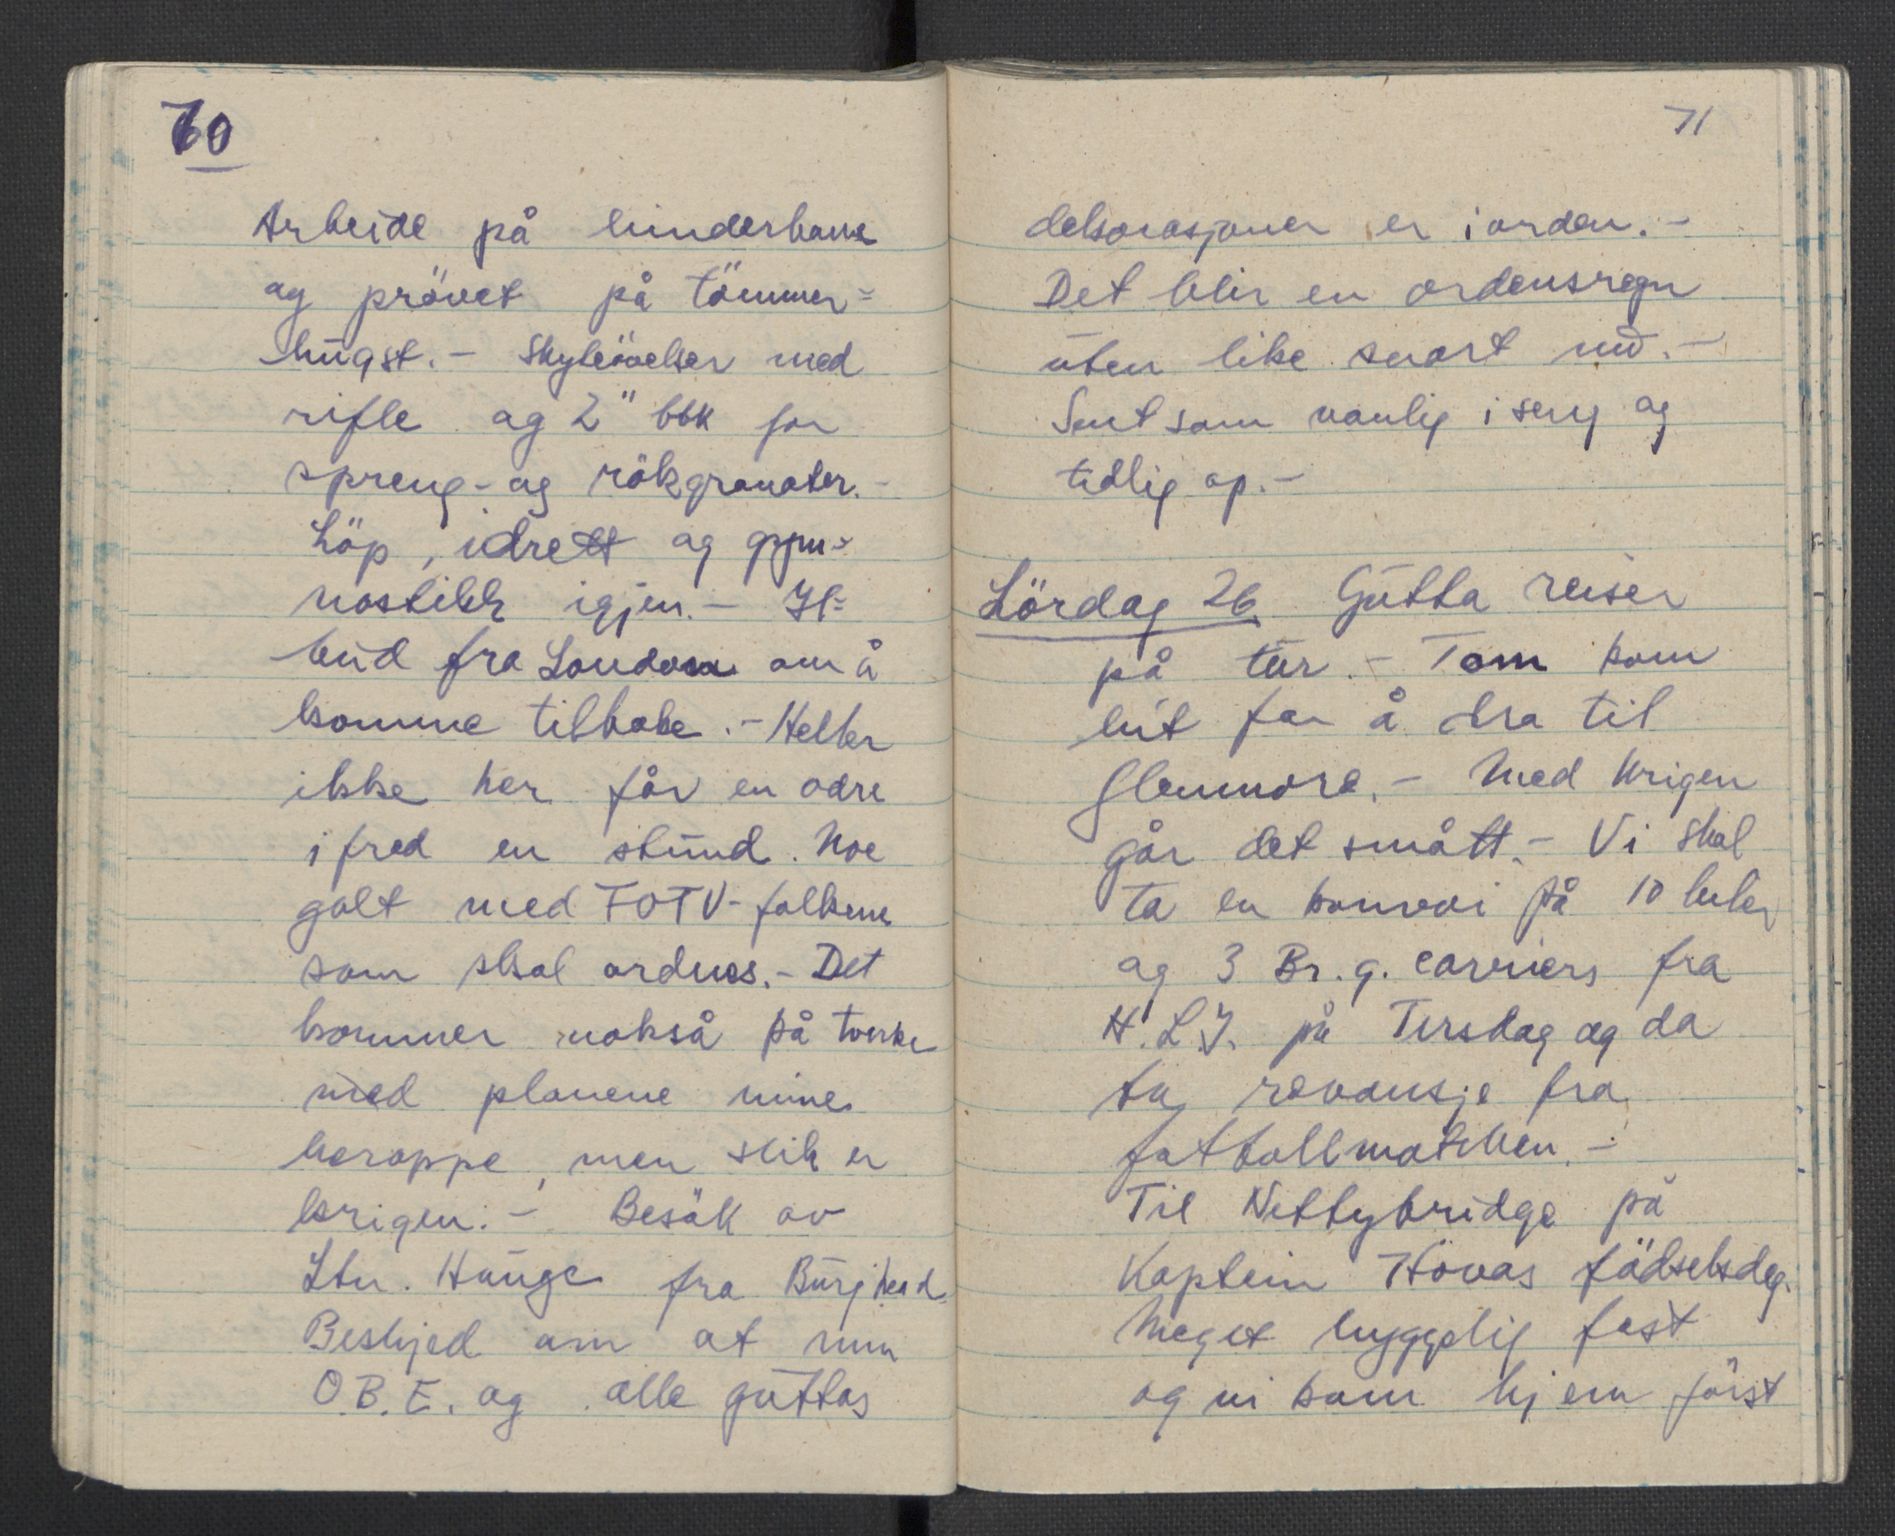 70
Arbeide på hinderbane
og prövet på tömmer=
hugst. - Skyteövelser med
rifle og 2" bbk for
spreng- og rökgranater. -
Löp, idrett og gym=
nastikk igjen. - Il=
bud fra London om å
komme tilbake. - Heller
ikke her får en være
i fred en stund. Noe
galt med FOTV-folkene
som skal ordnes. - Det
kommer nokså på tverke
med planene mine
heroppe, men slik er
krigen. - Besök av
Ltn. Hauge fra Burghead
Beskjed om at min
O.B.E. og alle guttas
71
dekorasjoner er i orden. -
Det blir en ordensregn
uten like snart nu. -
Sent som vanlig i seng og
tidlig op. -
Lördag 26. Gutta reiser
på tur. - Tom kom
hit for å dra til
Glenmore. - Med krigen
går det smått. - Vi skal
ta en konvoi på 10 biler
og 3 Br. g. carriers fra
H.L.I. på Tirsdag og da
ta revansje fra
fotballmatchen. -
Til Nethybridge på
Kaptein Hovas födselsdag.
Meget hyggelig fest
og vi kom hjem först